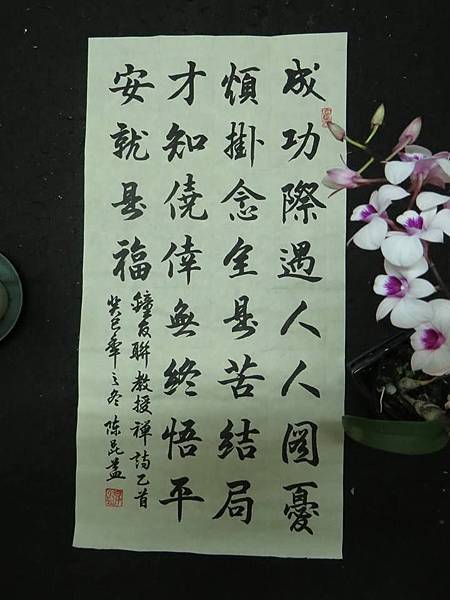 成功際遇人人圖憂
煩掛念全是苦結局
才知僥倖無終悟平
安就是福
鐘友聯教授禪詩乙首
癸巳年之冬 陳昆益